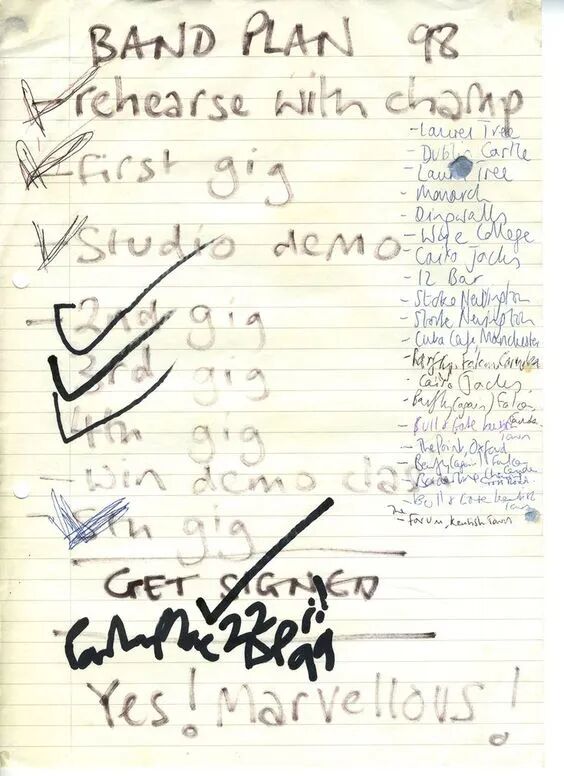 BAND PLAN 98
rehearse with champ
- first gig
Studio demo
- 2nd gig
3rd gig
4th gig
- win demo clas
- 5th gig
GET SIGNED
22
99!!
Yes! Marvellous!
- Laurel Tree
- Dublin Castle
- Laurel Tree
- Monarch
- Dingwalls
- Wye College
- Cairo Jacks
- 12 Bar
- Stoke Newington
- Stoke Newington
- Cuba Cafe, Manchester
- Barfly, Falcon, Camden
- Cairo Jacks
- Barfly (again) Falcon
- Bull & Gate Kentish Town
- The Point, Oxford
- Barfly (again) Falcon Camden
- Borderline, Charing Cross Road
- Bull & Gate Kentish Town
- Forum, Kentish Town